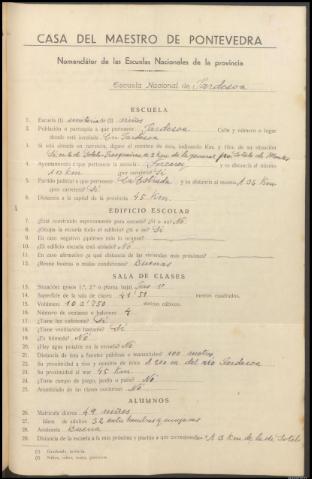 CASA DEL MAESTRO DE PONTEVEDRA
Nomenclátor de las Escuelas Nacionales de la provincia
Escuela Nacional de Sardesoa
ESCUELA
1. Escuela (1) unitaria de (2) niños
2. Población o parroquia a que pertenece Calle y número o lugar
donde está instalada
3. Si está situada en carretera, dígase el nombre de ésta, indicando Km. y Hm. de su situación
4. Ayuntamiento a que pertenece la escuela Forcarey y su distancia al mismo
10 Km (por carretera) Sí
5. Partido judicial a que pertenece La Estrada y su distancia al mismo A 34 Km
(por carretera) Sí
6. Distancia a la capital de la provincia 45 Km.
EDIFICIO ESCOLAR
7. ¿Está construído expresamente para escuela? ¿Sí o no? No
8. ¿Ocupa la escuela todo el edificio? ¿Sí o no? Sí
9. En caso negativo ¿quiénes más lo ocupan?
10. ¿El edificio escuela está aislado? No
11. En caso afirmativo ¿a qué distancia de las viviendas más próximas?
12. ¿Reúne buenas o malas condiciones? Buenas
SALA DE CLASES
13. Situación (pisos 1.º, 2.º o planta baja) Piso 1º
14. Superficie de la sala de clases 41'51 metros cuadrados.
15. Volúmen 102'750 metros cúbicos.
16. Número de ventanas o balcones 4
17. ¿Tiene luz suficiente? Sí
18. ¿Tiene ventilación bastante? Sí
19. ¿Es húmeda? No
20. ¿Hay agua potable en la escuela? No
21. Distancia de ésta a fuentes públicas o manantiales 100 metros
22. Su proximidad a ríos y nombre de éstos A 200 m del río
23. Su proximidad al mar 45 Km.
24. ¿Tiene campo de juego, jardín o patio? No
25. Anchurosidad de las clases contiguas No
ALUMNOS
26. Matrícula diurna 49 niños
27. Idem de adultos 32 entre hombres y mujeres
28. Asistencia Buena
29. Distancia de la escuela a la más próxima y pueblo a que corresponde A 3 Km de la de
(1) Graduada, unitaria.
(2) Niños, niñas, mixta, párvulos.